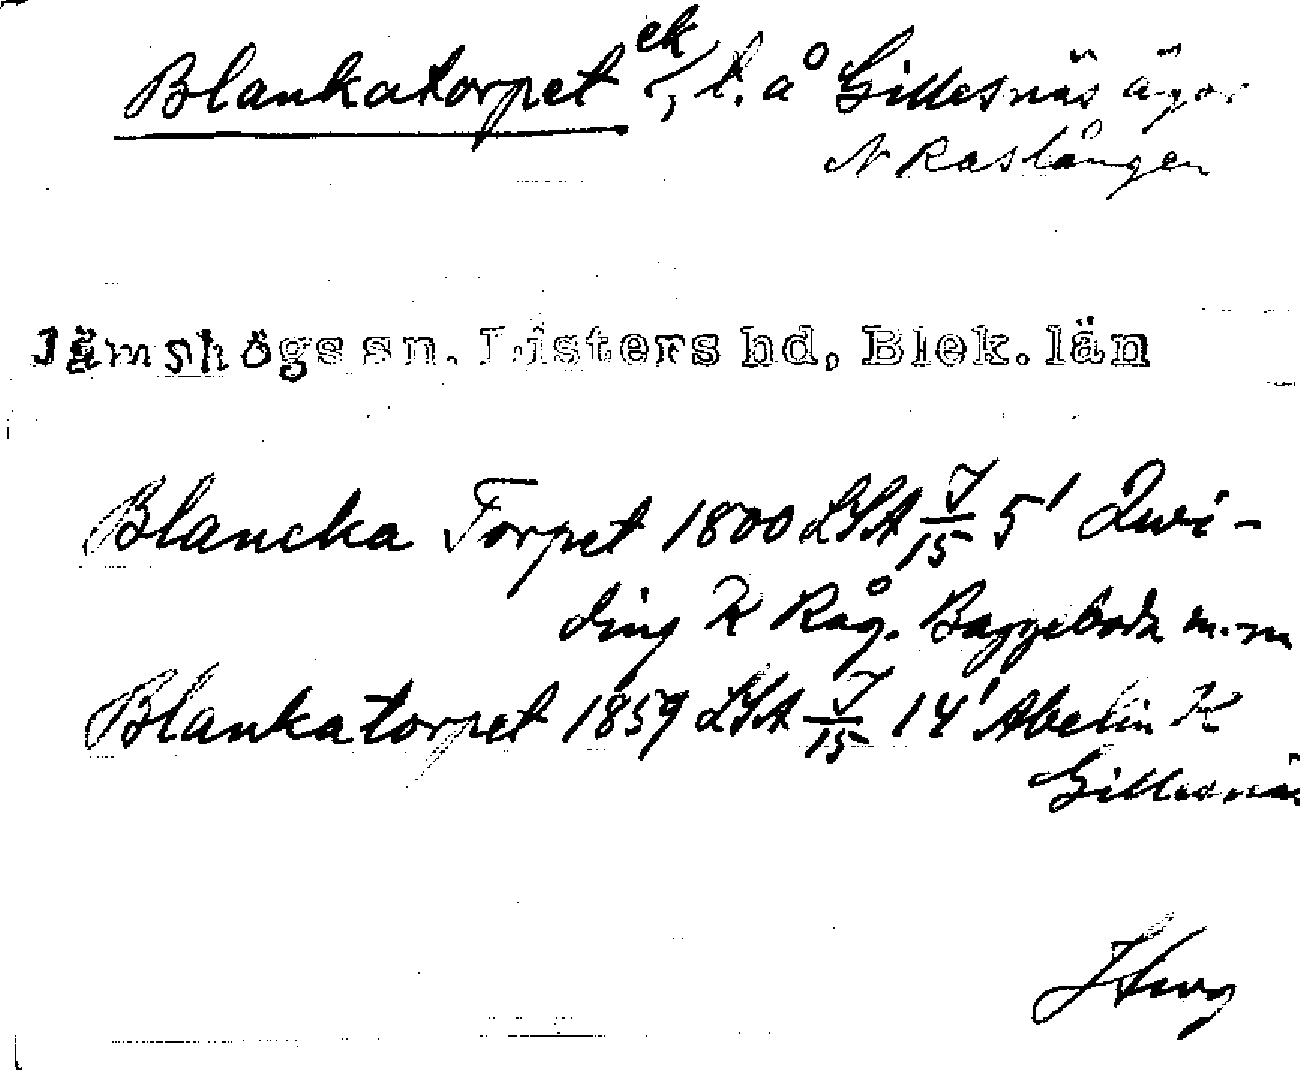 Blankatorpet ek, t. å Gillesnäs ägor
N Raslången
Jämshögs sn. Listers hd, Blek. län
Blancka Torpet 1800 LSA J/15 5¹ Qwi-
ding K Råg. Baggeboda m.m
Blankatorpet 1859 LSA J/15 14¹ Abelin K
Gillesnäs